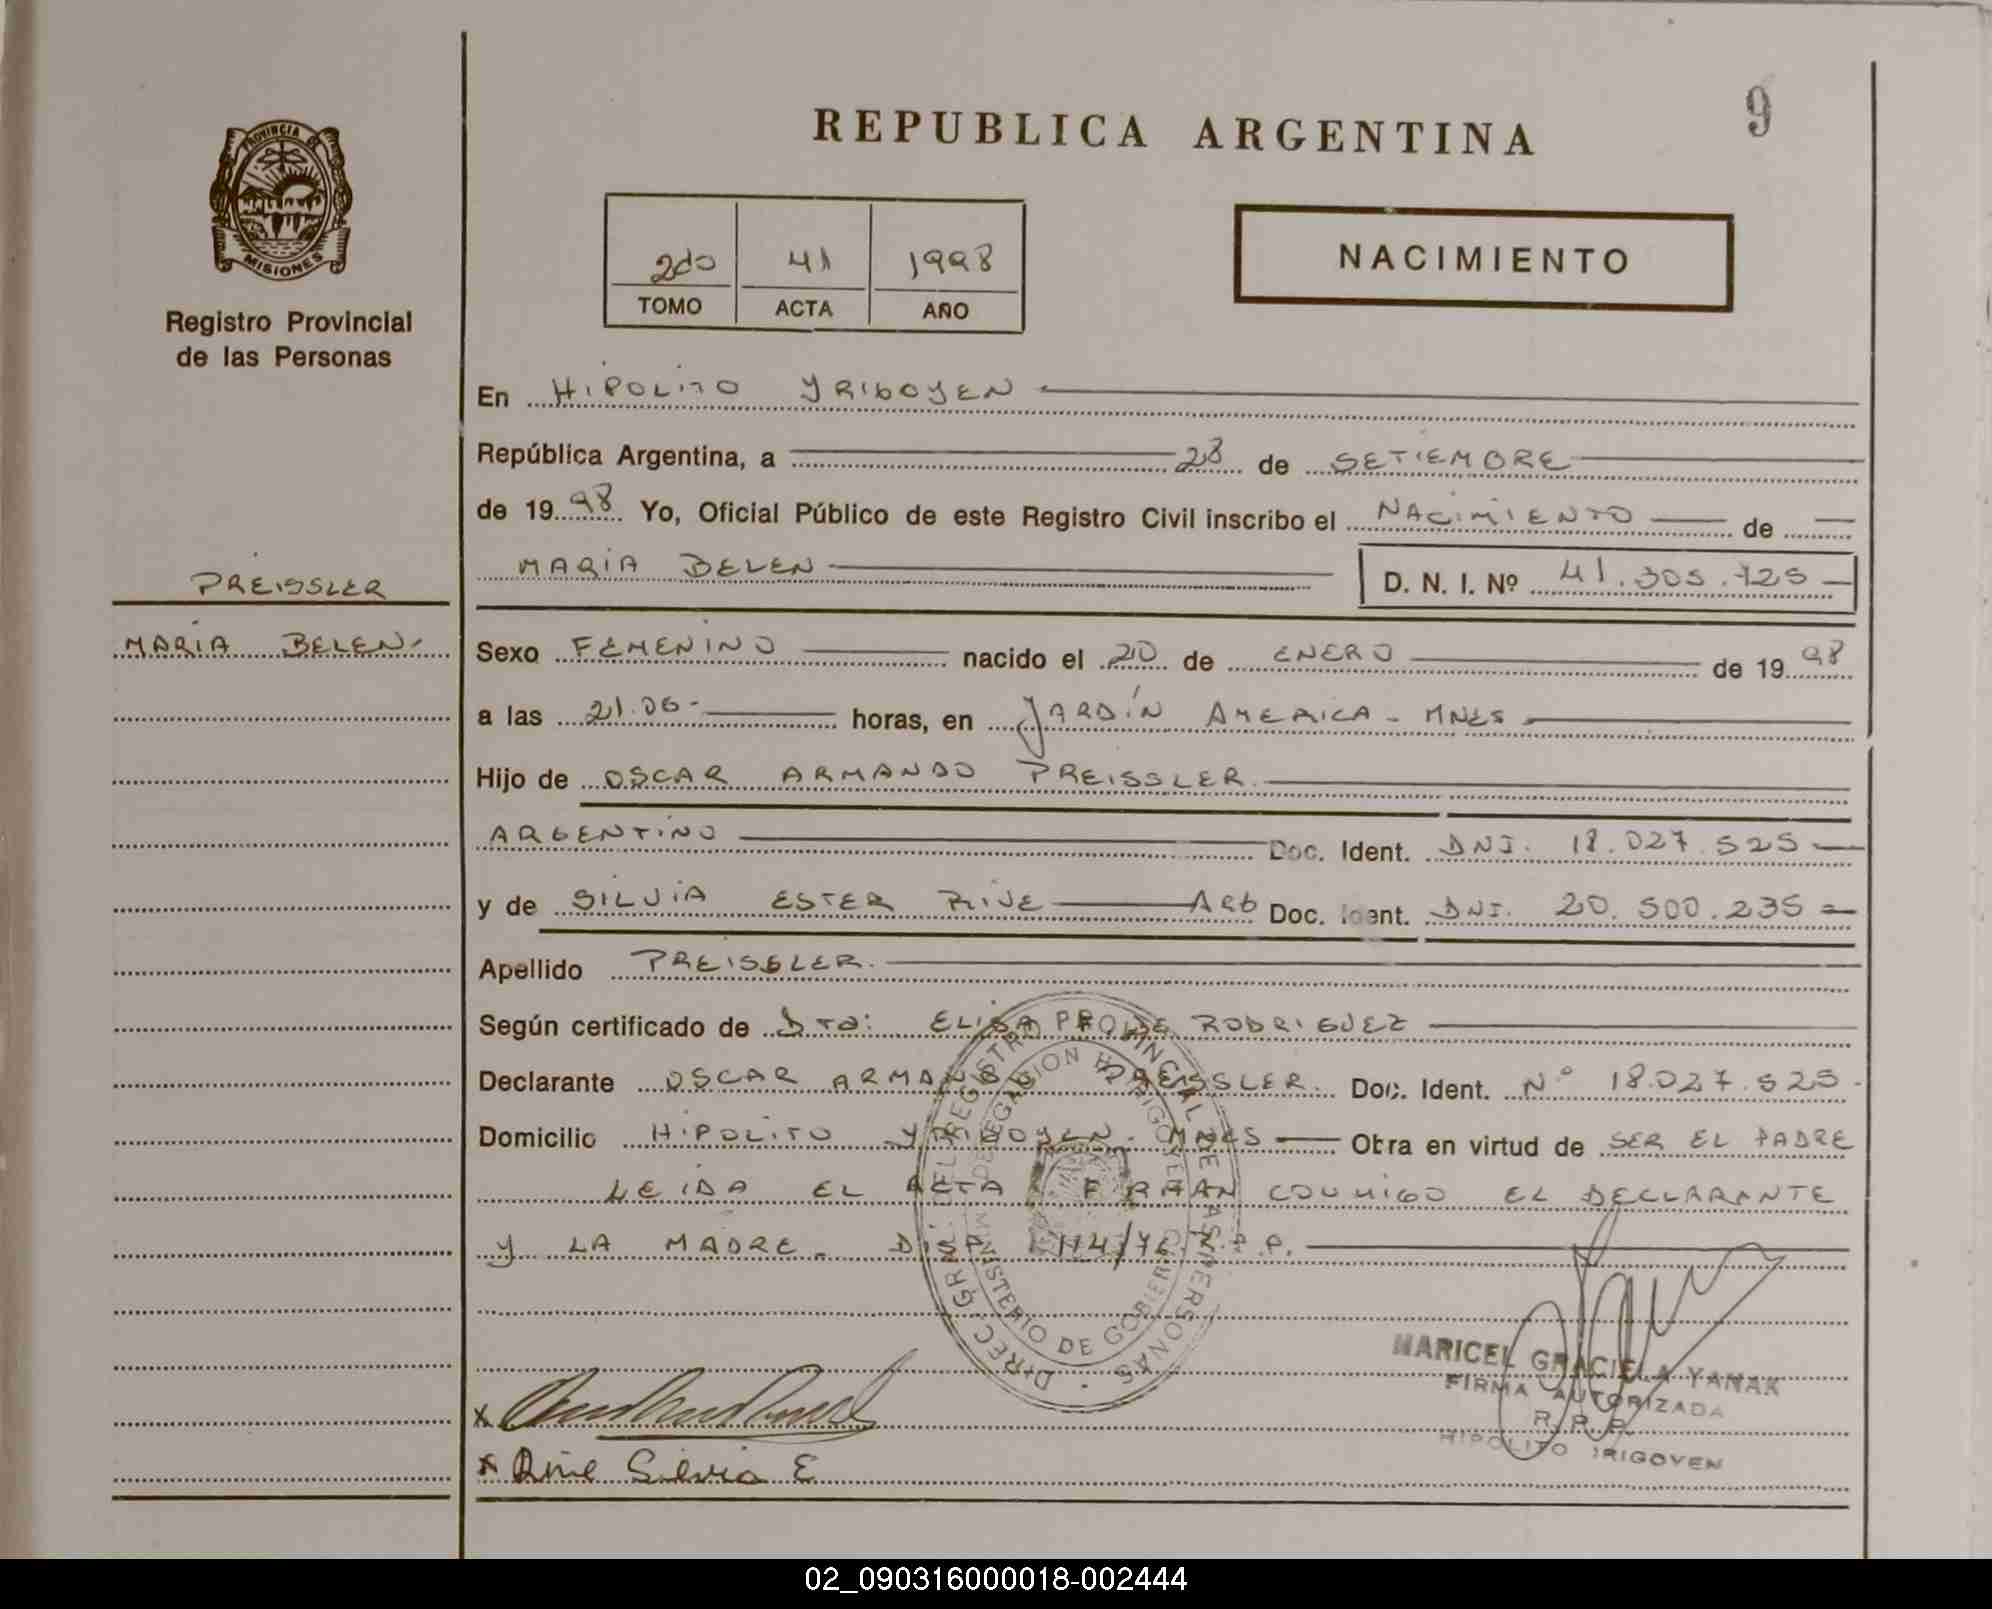 REPUBLICA ARGENTINA
9
PROVINCIA DE
MISIONES
Registro Provincial
de las Personas
2do 41 1998
TOMO ACTA AÑO
NACIMIENTO
En HIPOLITO YRIGOYEN
República Argentina, a 28 de SETIEMBRE
de 1998 Yo, Oficial Público de este Registro Civil inscribo el NACIMIENTO de
MARIA BELEN D. N. I. Nº 41.305.125
PREISSLER
MARIA BELEN
Sexo FEMENINO nacido el 20 de ENERO de 1998
a las 21.06 horas, en JARDÍN AMERICA - MNES
Hijo de OSCAR ARMANDO PREISSLER
ARGENTINO Doc. Ident. DNI. 18.027.525
y de SILVIA ESTER RIVE ARG Doc. Ident. DNI. 20.500.235
Apellido PREISSLER.
Según certificado de Dra: ELISA RODRIGUEZ
Declarante OSCAR ARMANDO PREISSLER. Doc. Ident. Nº 18.027.525.
Domicilio HIPOLITO YRIGOYEN. MNES Obra en virtud de SER EL PADRE
LEIDA EL ACTA FIRMAN CONMIGO EL DECLARANTE
Y LA MADRE. DISP. 114/ R.P.P.
DIREC. GRAL. DEL REGISTRO PROVINCIAL DE LAS PERSONAS
MINISTERIO DE GOBIERNO
DELEGACION H. YRIGOYEN
MARICEL GRACIELA YANAK
FIRMA AUTORIZADA
R. P. P.
HIPOLITO IRIGOYEN
x
x Rive Silvia E
02_090316000018-002444